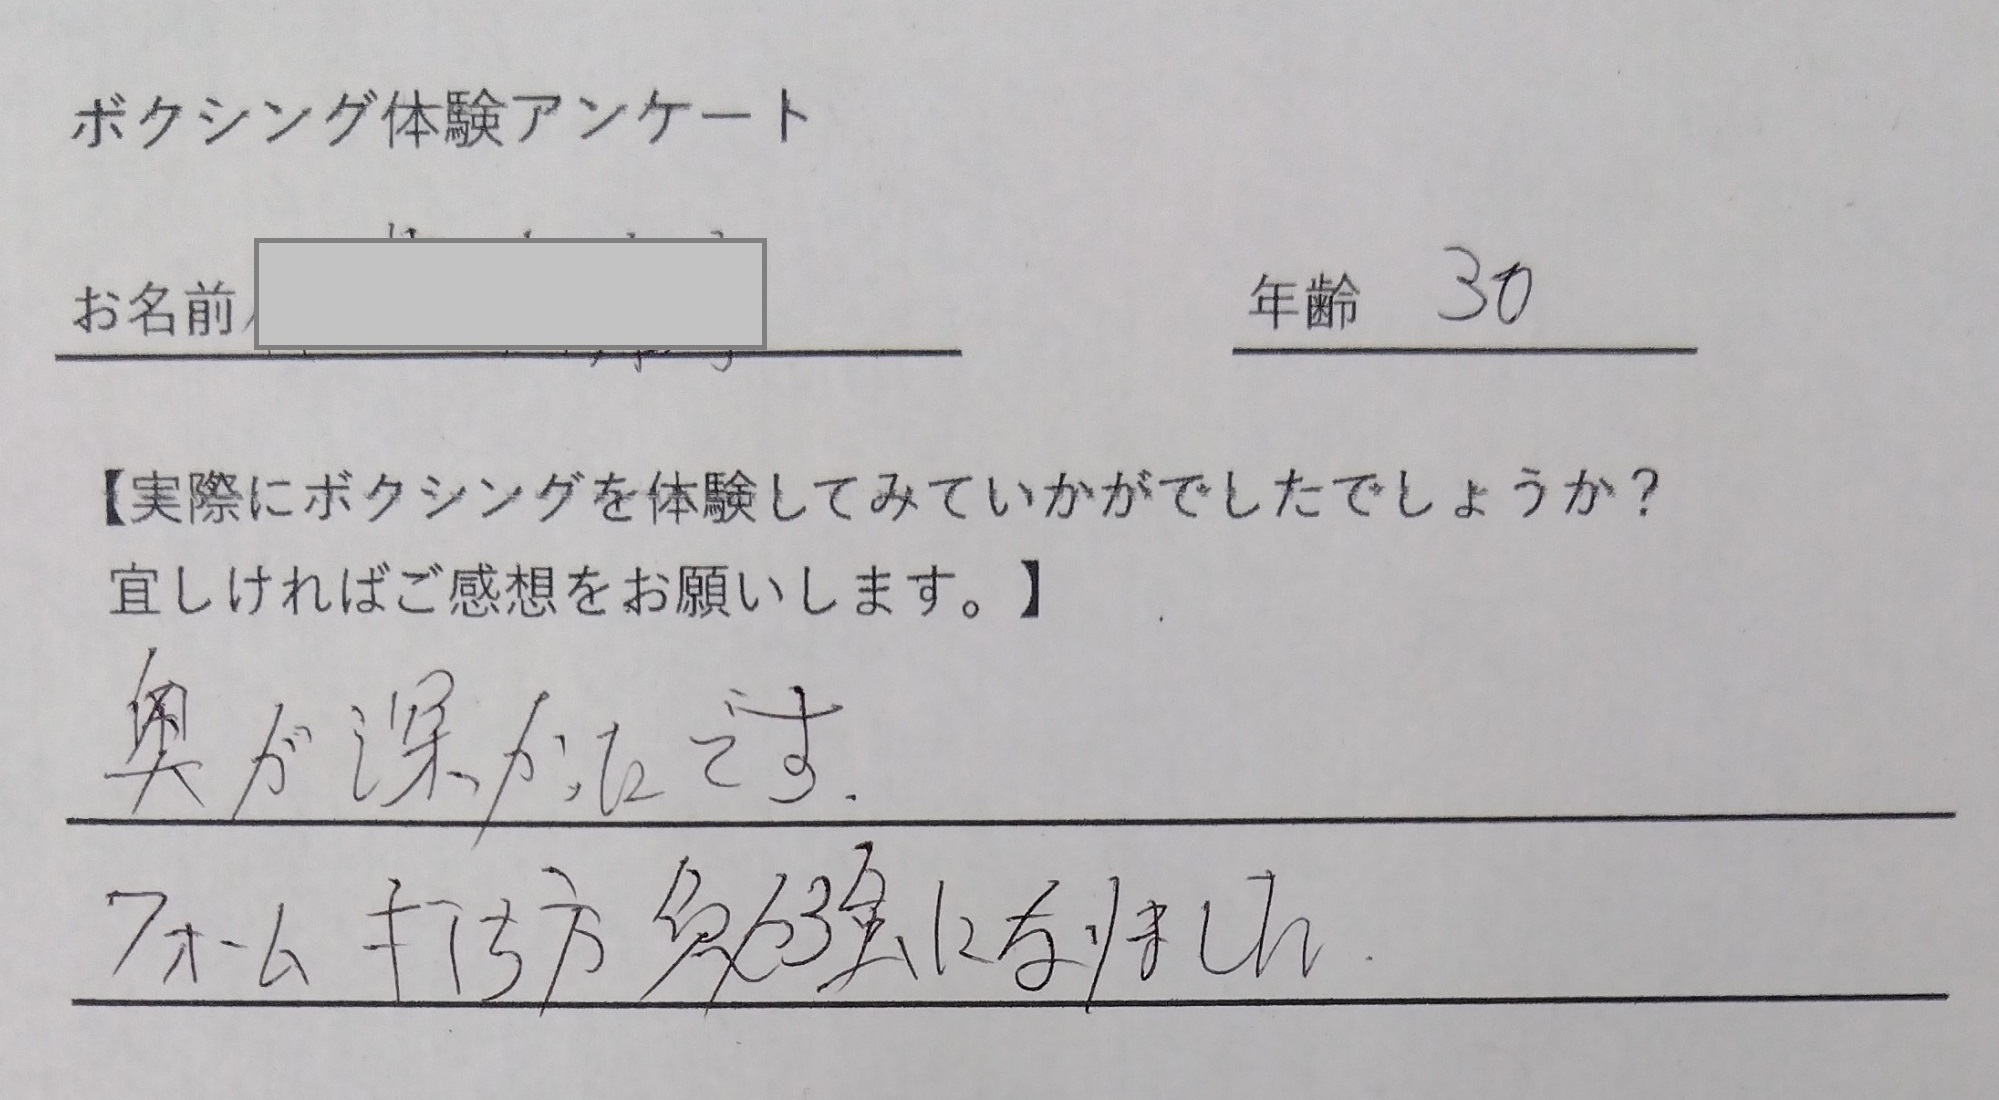 ボクシング体験アンケート
お名前
年齢 30
【実際にボクシングを体験してみていかがでしたでしょうか?
宜しければご感想をお願いします。】
奥が深かったです.
フォーム 打ち方 勉強になりました.